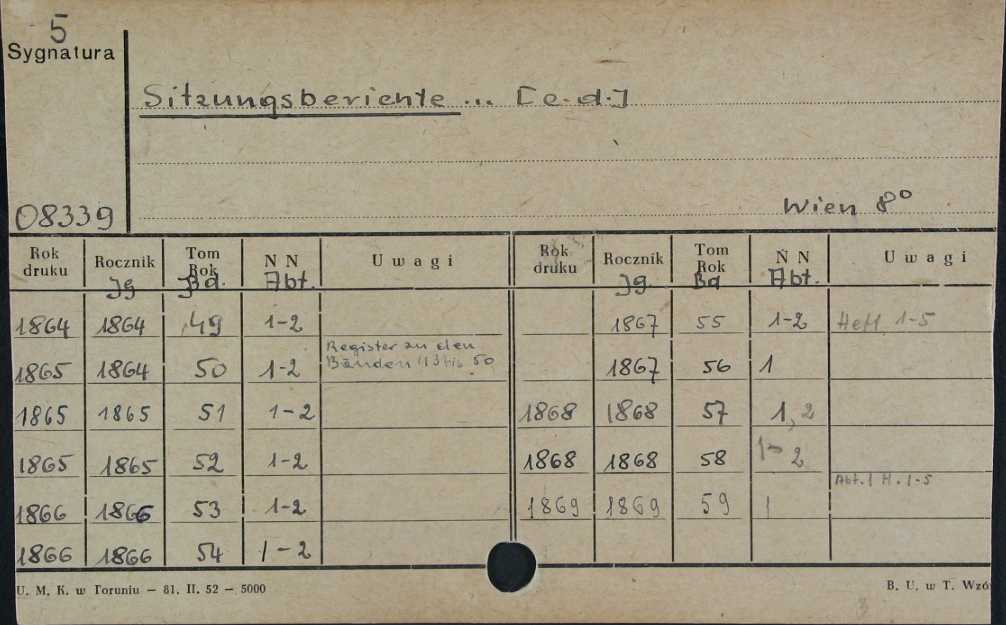 5
Sygnatura
Sitzungsberichte ... [c.d.]
08339
Wien 8°
Rok druku Rocznik Jg Tom Rok Bd. N N Abt. Uwagi
1864 1864 49 1-2
1865 1864 50 1-2 Register zu den Bänden 43 bis 50
1865 1865 51 1-2
1865 1865 52 1-2
1866 1866 53 1-2
1866 1866 54 1-2
Rok druku Rocznik Jg. Tom Rok Bd N N Abt. Uwagi
1867 55 1-2 Heft 1-5
1867 56 1
1868 1868 57 1, 2
1868 1868 58 1-2
1869 1869 59 1 Abt. 1 H. 1-5
U. M. K. w Toruniu — 81. II. 52 — 5000
B. U. w T. Wzó